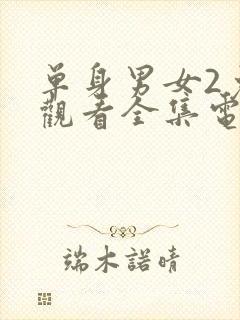 單身男女2
觀看全集電
端木諾晴